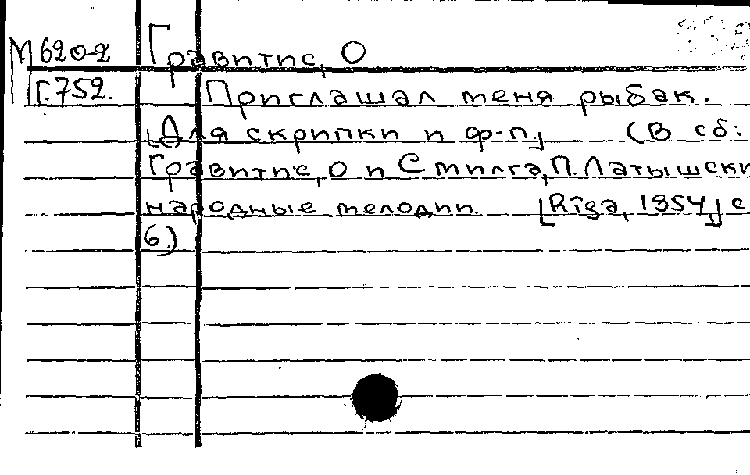 М620-2 Гравитис, О
Г.752. Приглашал меня рыбак.
[Для скрипки и ф-п] (В сб:
Гравитис, О и Смилга, П. Латышски
народные мелодии [Rīga, 1954,] с
6)